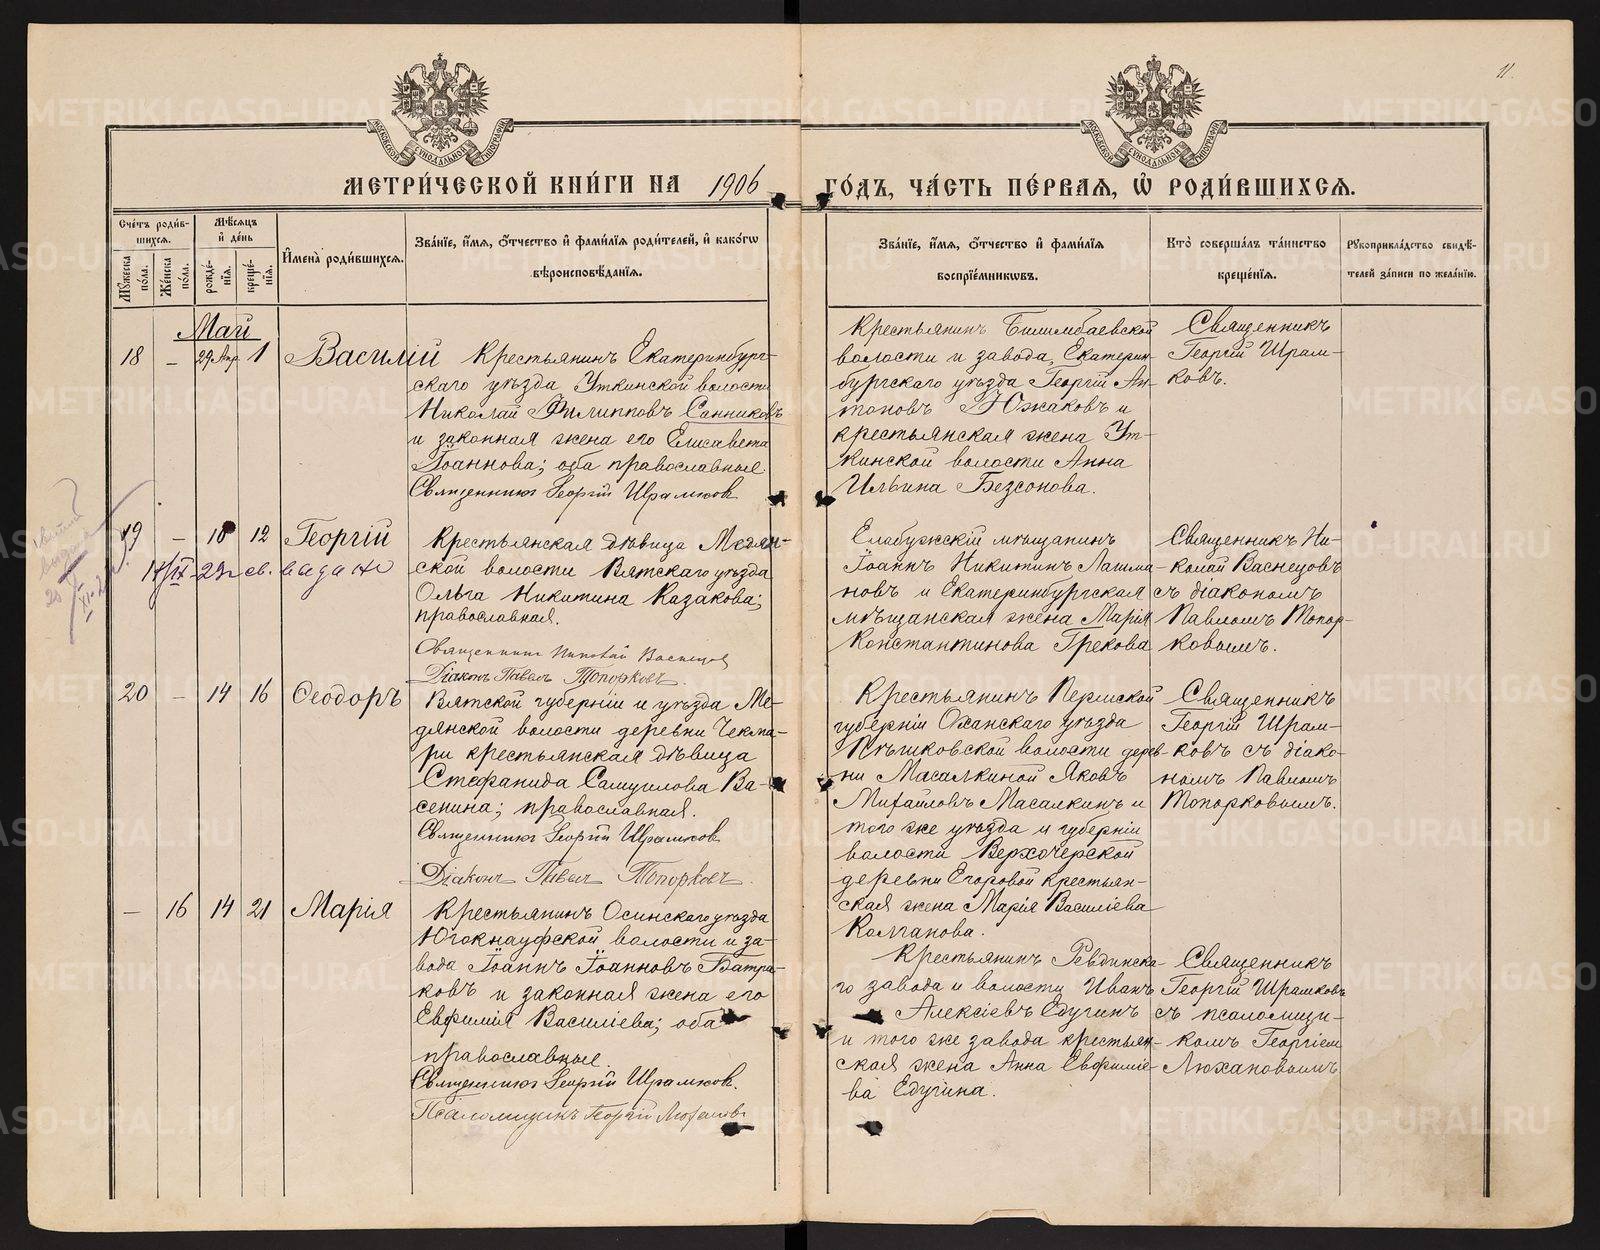 11.
МОСКОВСКОЙ СѴНОДАЛЬНОЙ ТИПОГРАФІИ
МОСКОВСКОЙ СѴНОДАЛЬНОЙ ТИПОГРАФІИ
МЕТРИ́ЧЕСКОЙ КНИ́ГИ НА 1906 ГО́ДЪ, ЧА́СТЬ ПЕ́РВАѦ, Ѡ҆ РОДИ́ВШИХСѦ.
Сче́тъ роди́в-
шихсѧ.
Мꙋ́жеска по́ла.
Же́нска по́ла.
Мѣ́сѧцъ
и҆ де́нь
рожде́-
нїѧ.
креще́-
нїѧ.
И҆мена̀ роди́вшихсѧ.
Зва́нїе, и҆́мѧ, ѻ҆́тчество и҆ фами́лїѧ роди́телей, и҆ како́гѡ
вѣроисповѣ́данїѧ.
Зва́нїе, и҆́мѧ, ѻ҆́тчество и҆ фами́лїѧ
воспрїе́мникѡвъ.
Кто̀ соверша́лъ та́инство
креще́нїѧ.
Рꙋкоприкла́дство свидѣ́-
телей за́писи по жела́нїю.
Май
18 – 29 Апр. 1 Василій
Крестьянинъ Екатеринбург-
скаго уѣзда Уткинской волости
Николай Филипповъ Санниковъ
и законная жена его Елисавета
Іоаннова; оба православные.
Священникъ Георгій Шрамковъ
Крестьянинъ Билимбаевской
волости и завода, Екатерин-
бургскаго уѣзда Георгій Ан-
тоновъ Южаковъ и
крестьянская жена Ут-
кинской волости Анна
Ильина Безсонова.
Священникъ
Георгій Шрам-
ковъ.
19 – 10 12 Георгій
св. выдано
Крестьянская дѣвица Медян-
ской волости Вятскаго уѣзда
Ольга Никитина Казакова;
православная.
Священникъ Николай Васнецовъ
Діаконъ Павелъ Топорковъ.
Елабужскій мѣщанинъ
Іоаннъ Никитинъ Лашма-
новъ и Екатеринбургская
мѣщанская жена Марія
Константинова Грекова
Священникъ Ни-
колай Васнецовъ
съ діакономъ
Павломъ Топор-
ковымъ.
20 – 14 16 Ѳеодоръ
Вятской губерніи и уѣзда Ме-
дянской волости деревни Чекма-
ри крестьянская дѣвица
Стефанида Самуилова Ва-
сенина; православная.
Священникъ Георгій Шрамковъ
Діаконъ Павелъ Топорковъ.
Крестьянинъ Пермской
губерніи Оханскаго уѣзда
волости дерев-
ни Масалкиной Яковъ
Михайловъ Масалкинъ и
того же уѣзда и губерніи
волости Верхочерской
деревни Егоровой крестьян-
ская жена Марія Василіева
Колчанова.
Священникъ
Георгій Шрам-
ковъ съ діако-
номъ Павломъ
Топорковымъ.
– 16 14 21 Марія
Крестьянинъ Осинскаго уѣзда
Югокнауфской волости и за-
вода Іоаннъ Іоанновъ Батра-
ковъ и законная жена его
Евфимія Василіева; оба
православные.
Священникъ Георгій Шрамковъ.
Псаломщикъ Георгій Люхановъ
Крестьянинъ Ревдинска-
го завода и волости Иванъ
Алексіевъ Едугинъ
и того же завода крестьян-
ская жена Анна Евфиміе-
ва Едугина.
Священникъ
Георгій Шрамковъ
съ псаломщи-
комъ Георгіем
Люхановымъ
METRIKI.GASO-URAL.RU